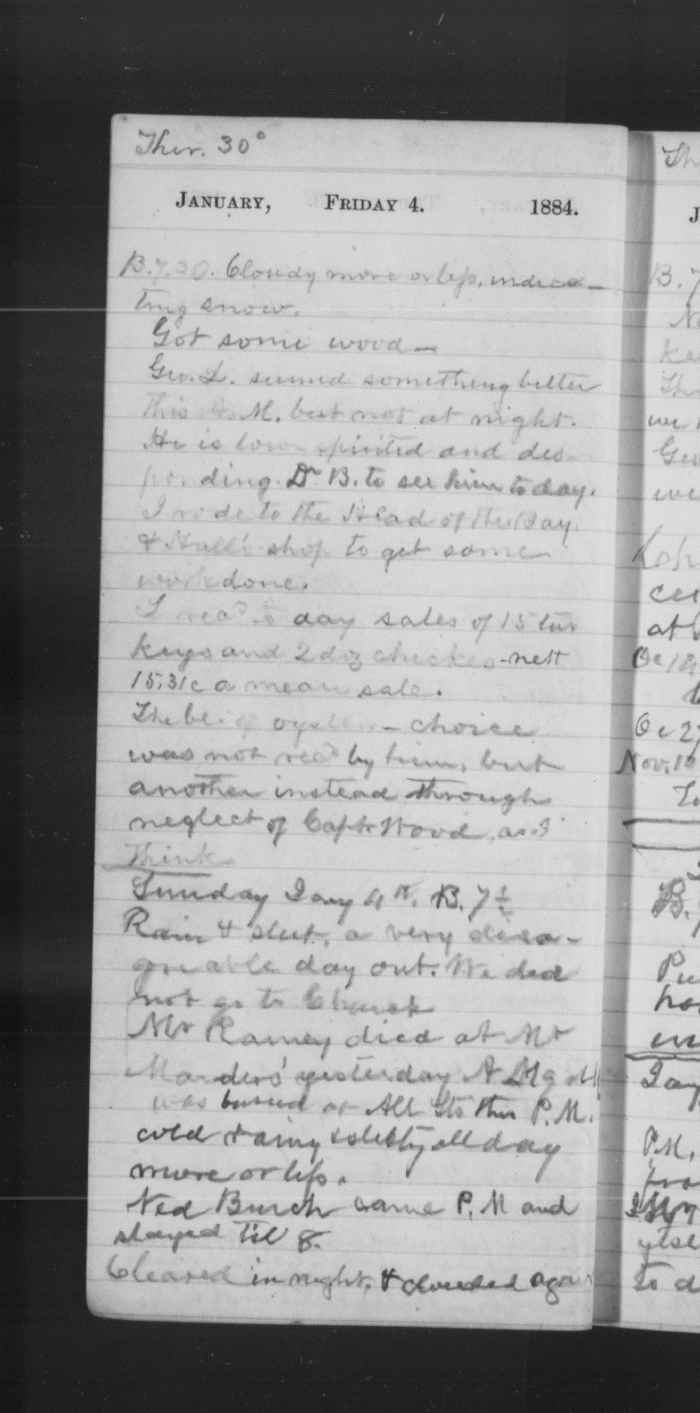 Ther. 30°
January, Friday 4. 1884.
B. 7.30. Cloudy more or less, indica-
ting snow.
Got some wood -
Geo. L. seemed something better
this A.M. but not at night.
He is low spirited and des-
ponding. Dr. B. to see him to day.
I rode to the Head of the Bay
& Hall's shop to get some
work done.
I recd to day sales of 15 tur
keys and 2 doz chickes - nett
15.31c a mean sale.
The of - choice
was not recd by him, but
another instead through
neglect of Capt Wood, as I
Think
Sunday Jany B. 7½
Rain & sleet, a very disa-
greeable day out. We did
not go to Church
Mr Ramey died at Mr
yesterday A
was buried at All Sts this P.M.
cold rainy & sletty all day
more or less.
Ned Burch came P.M and
stayed til 8.
Cleared in night, & clouded again
Th
J
B. 7
we
Geo
we
at
Oc 27
Nov. 10
B.
Jany
P.M.
to d